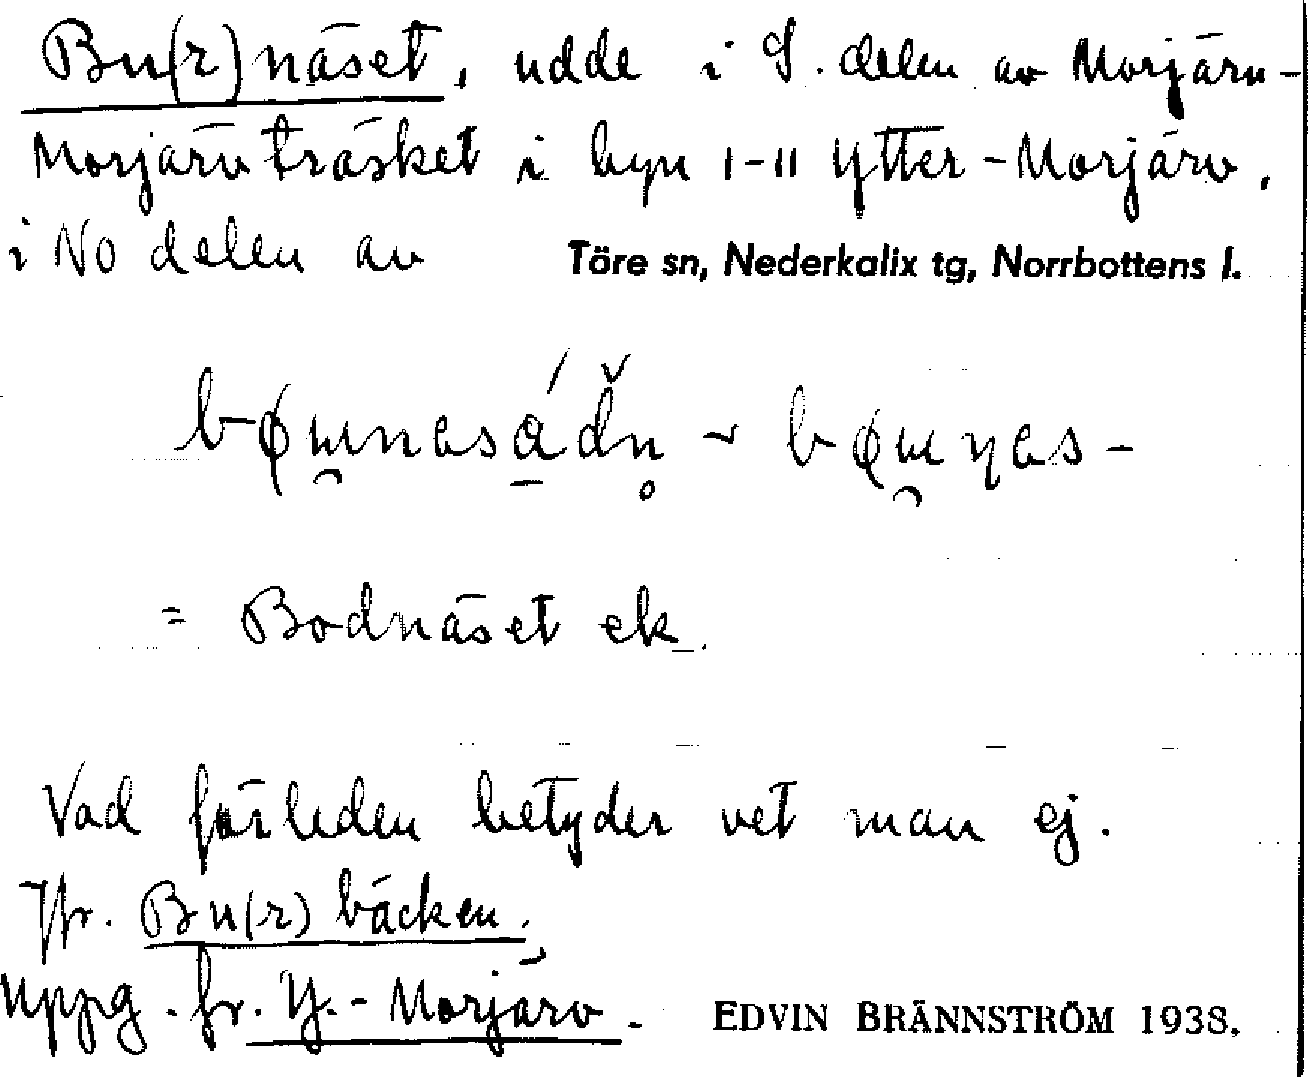 Bu(r)näset, udde i S. delen av Morjärv-
Morjärvträsket i byn 1-11 Ytter-Morjärv,
i NO delen av Töre sn, Nederkalix tg, Norrbottens l.
= Bodnäset ek.
Vad förleden betyder vet man ej.
Jfr. Bu(r)bäcken.
Uppg. fr. Y.-Morjärv. EDVIN BRÄNNSTRÖM 1938.